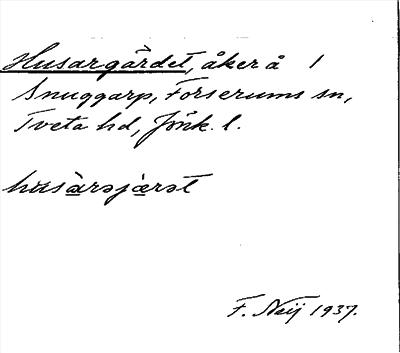 Husargärdet, åker å 1
Snuggarp, Forserums sn,
Tveta hd, Jönk. l.
husàrsjæ̀rət
F. Neij 1937.